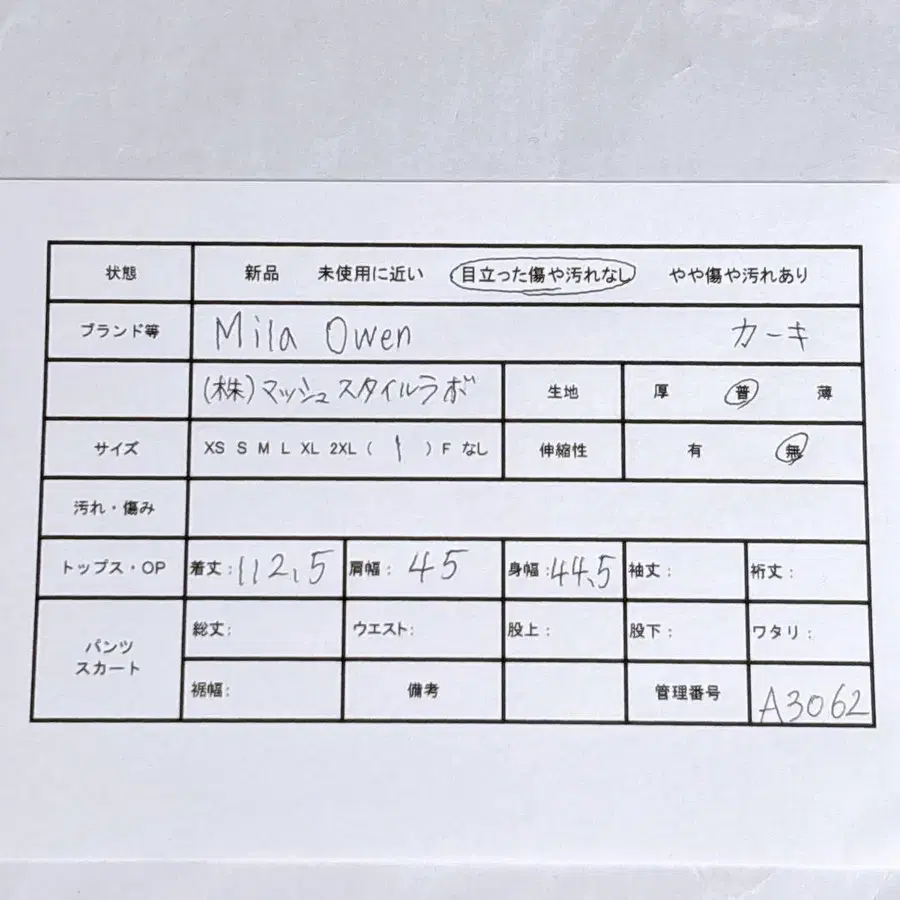 状態 新品 未使用に近い 目立った傷や汚れなし やや傷や汚れあり
ブランド等 Mila Owen カーキ
(株)マッシュスタイルラボ 生地 厚 普 薄
サイズ XS S M L XL 2XL ( 1 ) F なし 伸縮性 有 無
汚れ・傷み
トップス・OP 着丈:112.5 肩幅: 45 身幅:44.5 袖丈: 裄丈:
パンツ
スカート
総丈: ウエスト: 股上: 股下: ワタリ:
裾幅: 備考 管理番号 A3062